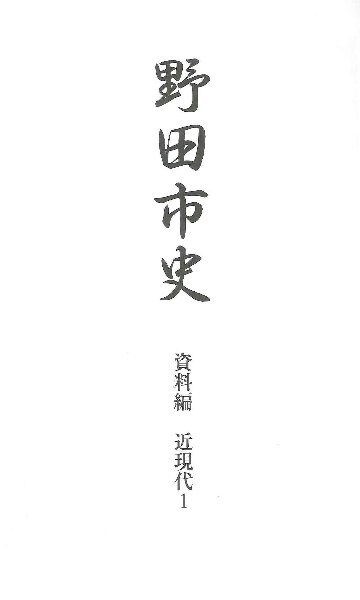 野田市史
資料編 近現代1